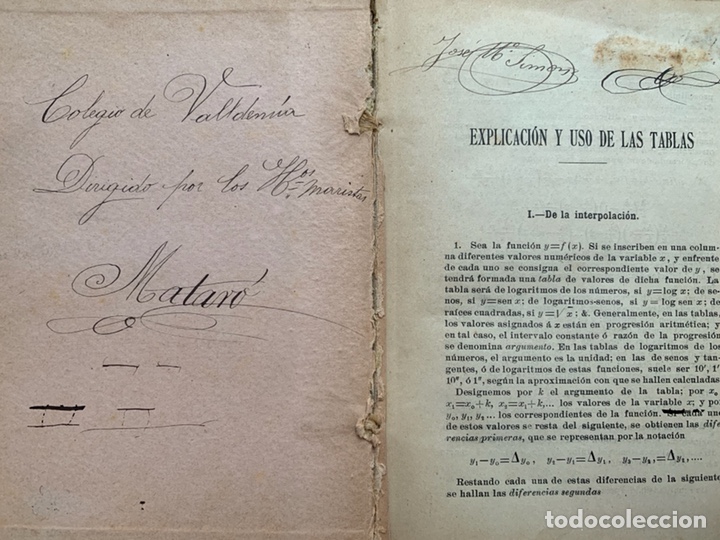 Colegio de Valldemía
Dirigido por los H.os Maristas
Mataró
José M.a Simon
EXPLICACIÓN Y USO DE LAS TABLAS
I.—De la interpolación.
1. Sea la función y=f (x). Si se inscriben en una colum-
na diferentes valores numéricos de la variable x, y enfrente
de cada uno se consigna el correspondiente valor de y, se
tendrá formada una tabla de valores de dicha función. La
tabla será de logaritmos de los números, si y=log x; de se-
nos, si y=sen x; de logaritmos-senos, si y = log sen x; de
raíces cuadradas, si y=√x; &. Generalmente, en las tablas,
los valores asignados á x están en progresión aritmética; y
en tal caso, el intervalo constante ó razón de la progresión
se denomina argumento. En las tablas de logaritmos de los
números, el argumento es la unidad; en las de senos y tan-
gentes, ó de logaritmos de estas funciones, suele ser 10', 1'
10", ó 1", según la aproximación con que se hallen calculadas
Designemos por k el argumento de la tabla; por x₀
x₁=x₀+k, x₂=x₁+k,... los valores de la variable x; y por
y₀, y₁, y₂ ... los correspondientes de la función. Si cada uno
de estos valores se resta del siguiente, se obtienen las dife-
rencias primeras, que se representan por la notación
y₁—y₀=Δy₀, y₂—y₁=Δy₁, y₃—y₂=Δy₂,....
Restando cada una de estas diferencias de la siguiente
se hallan las diferencias segundas
todocoleccion